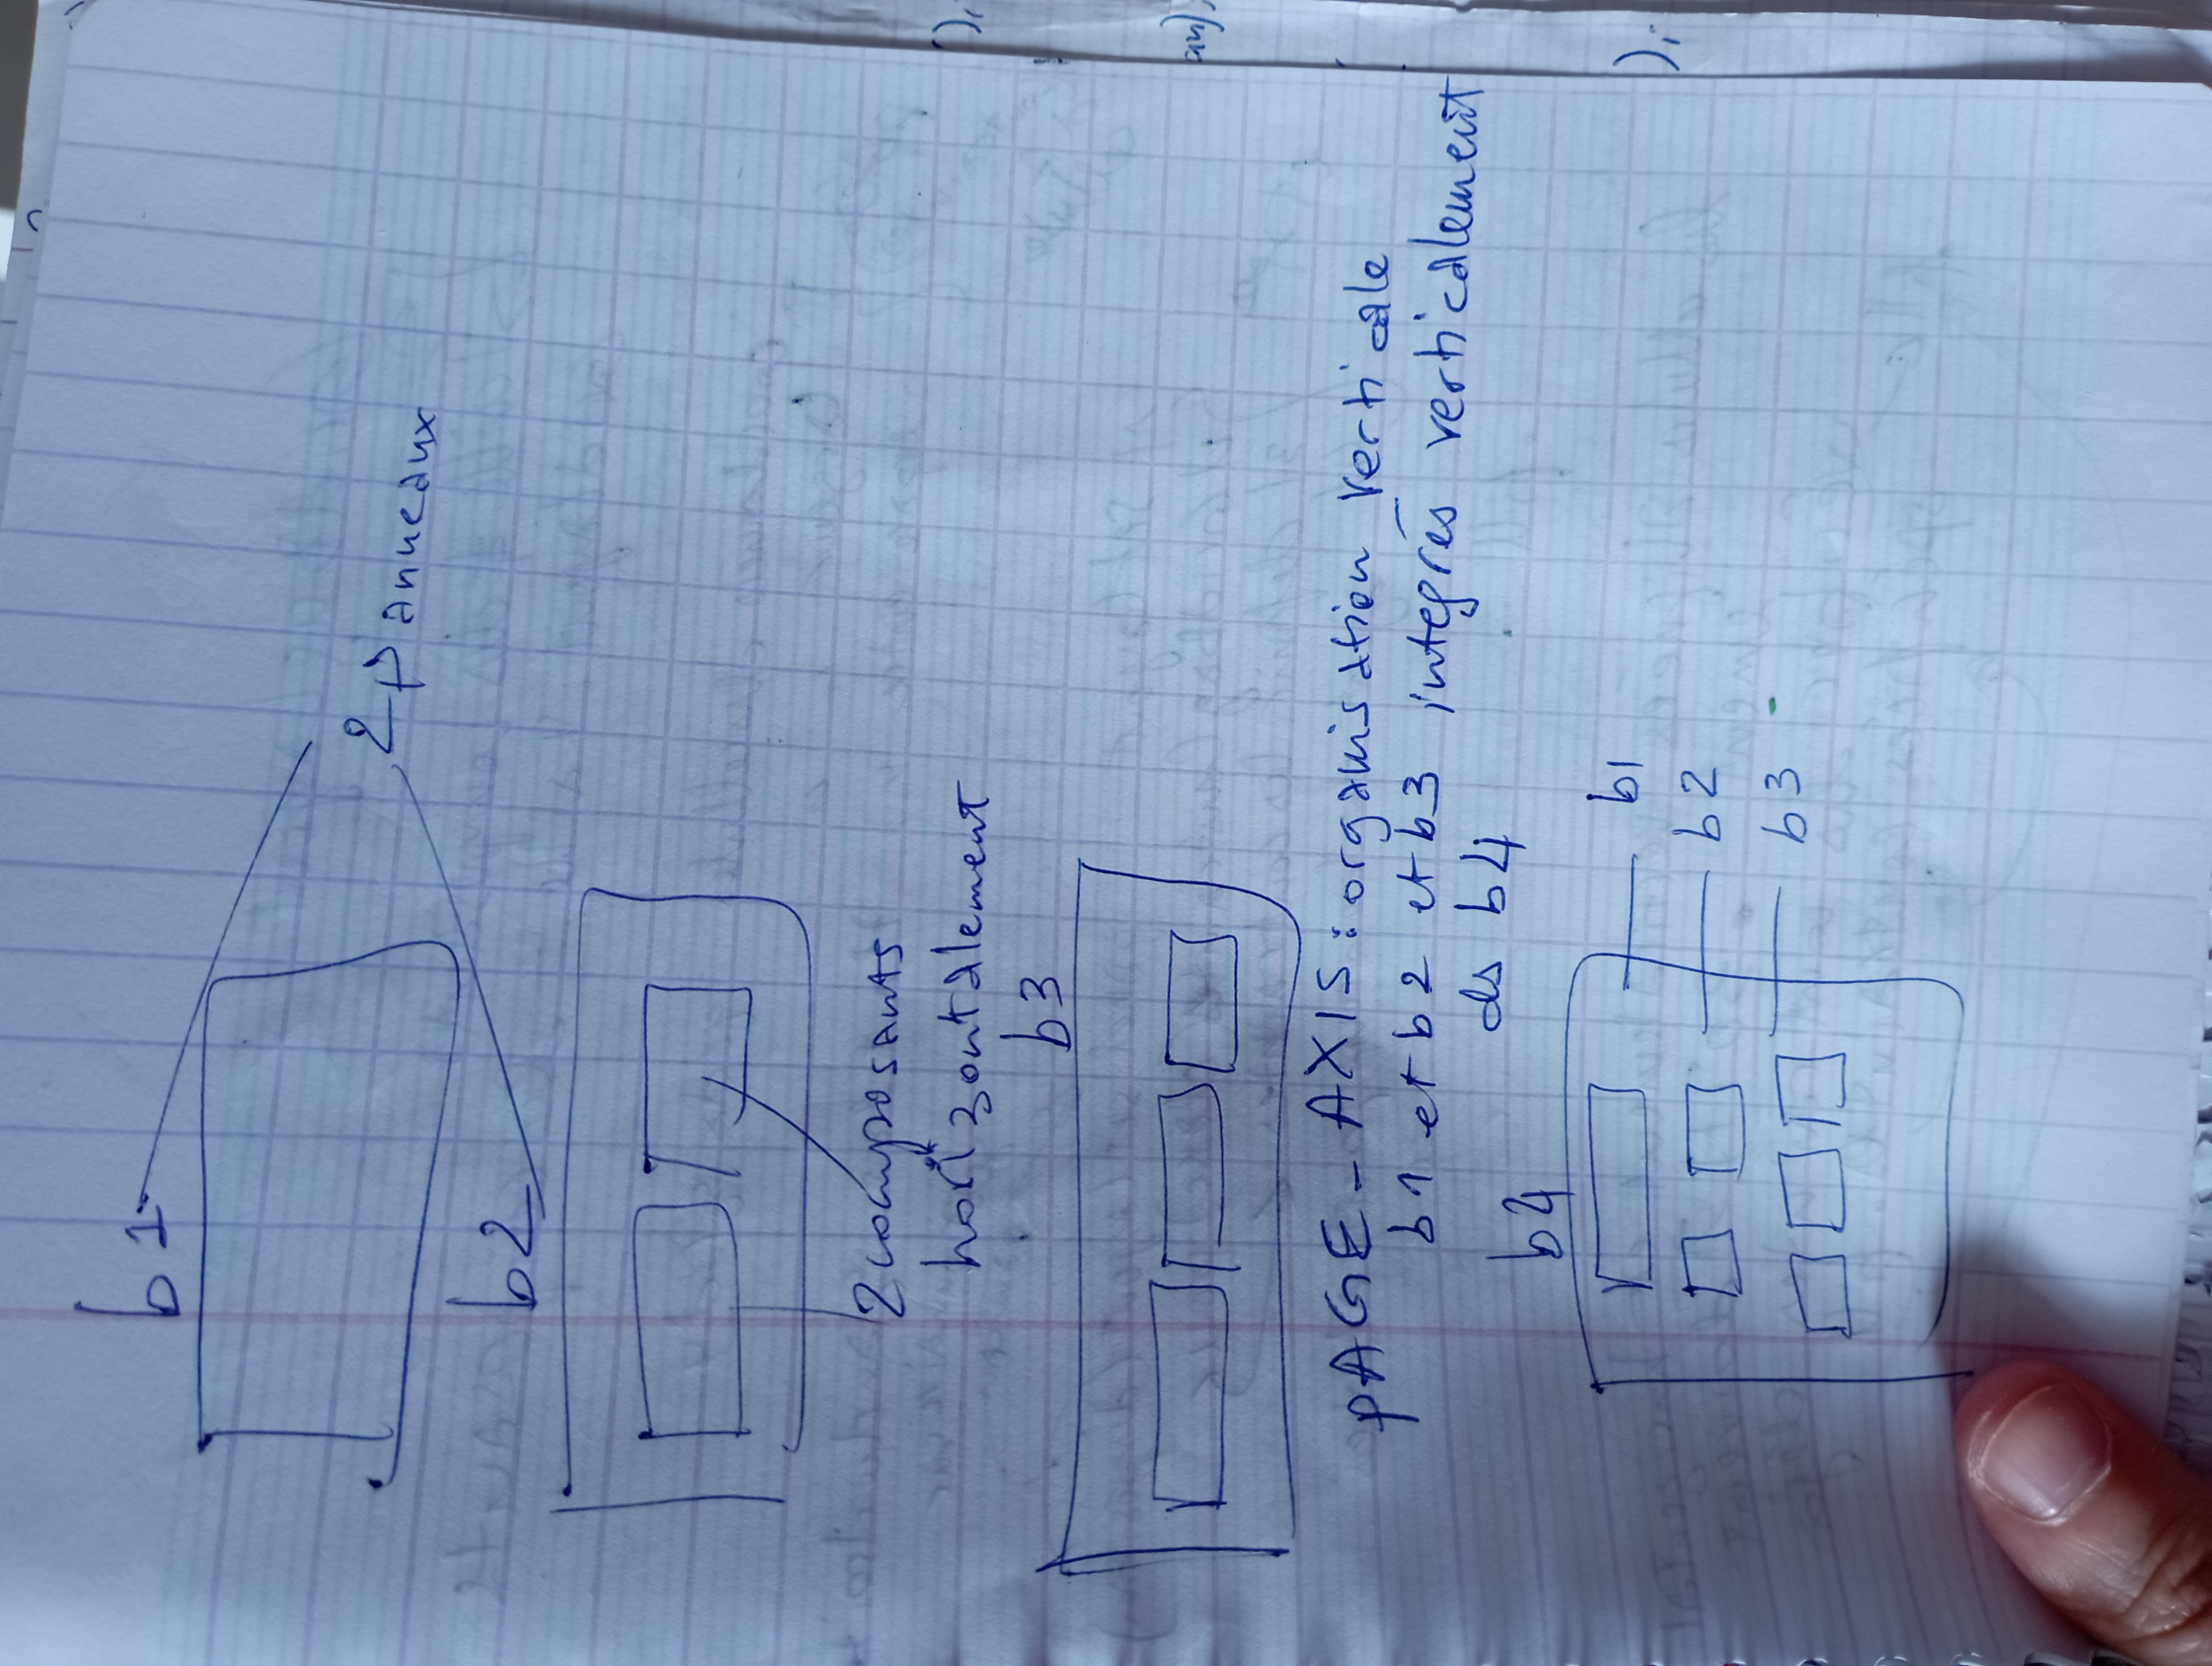 b1
2 panneaux
b2
2 composants
horizontalement
b3
PAGE_AXIS: organisation verticale
b1 et b2 et b3 integrés verticalement
ds b4
b4
b1
b2
b3
),
an),
),